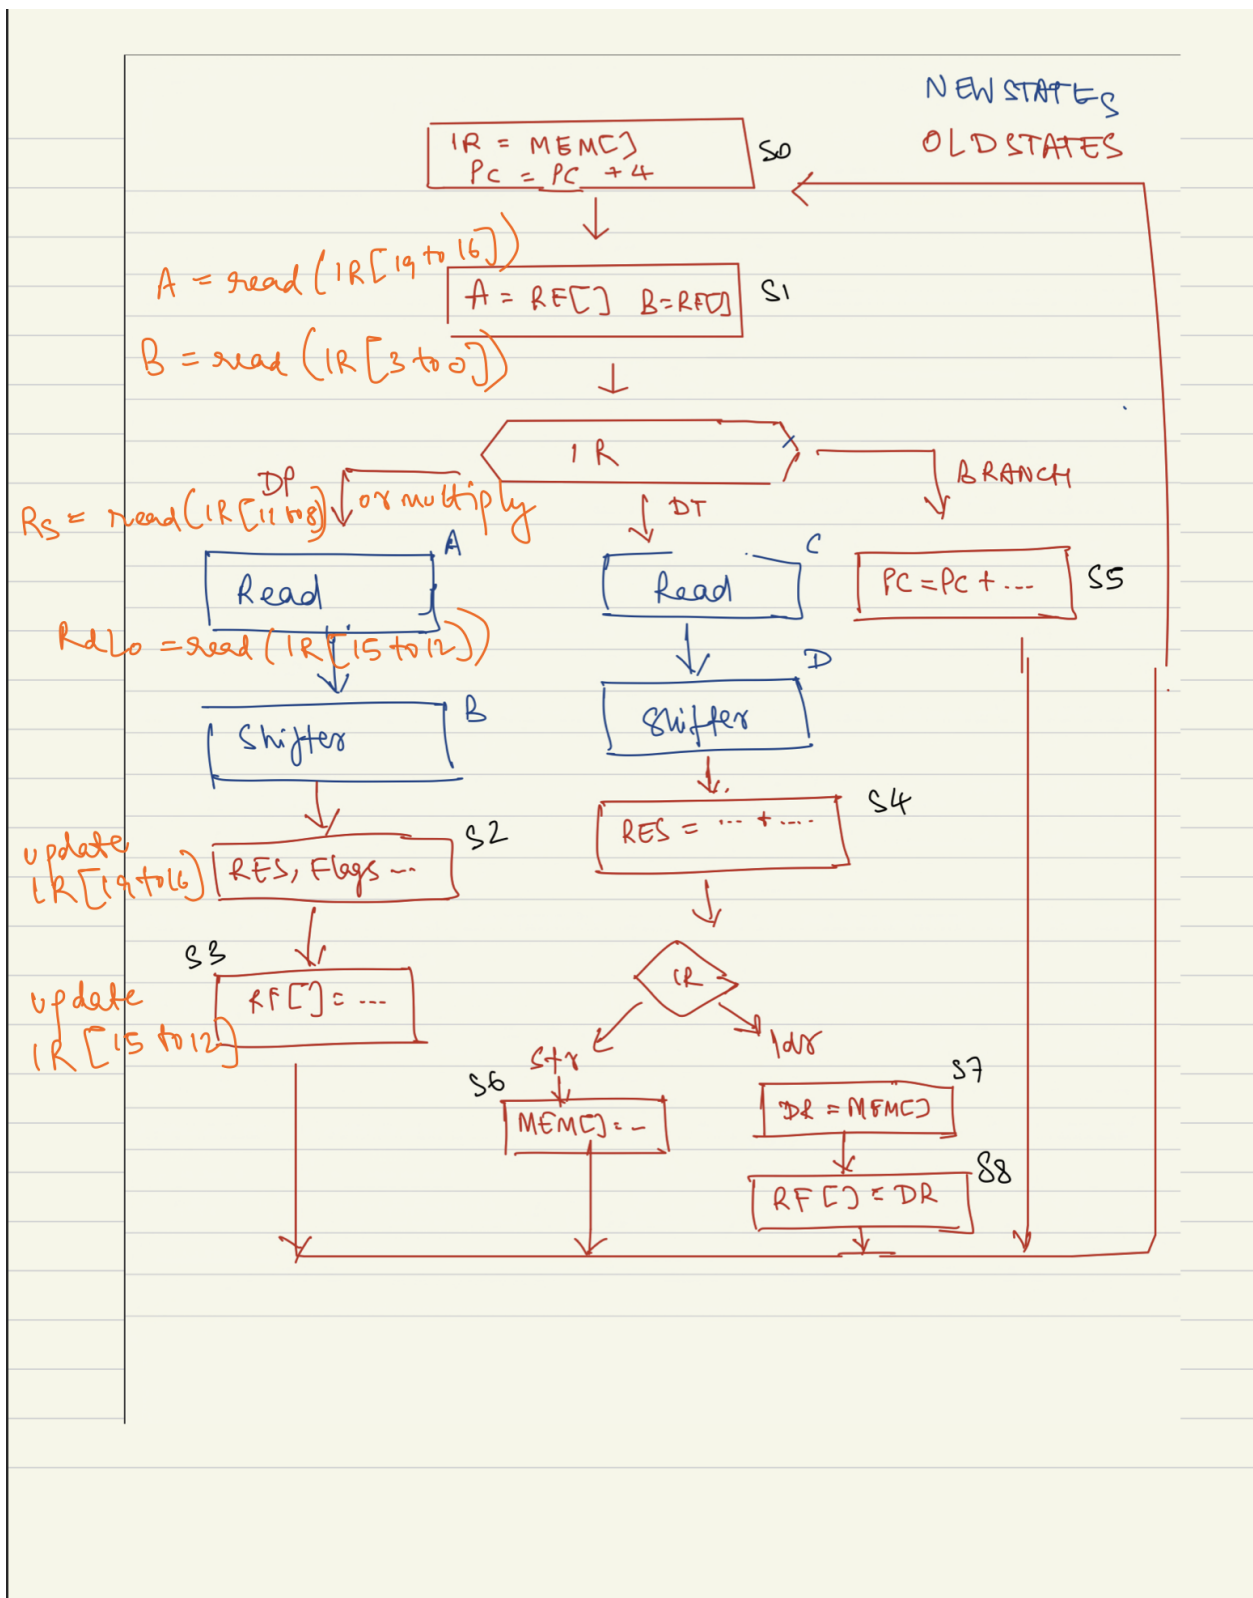 NEW STATES
OLD STATES
IR = MEM[]
PC = PC + 4
S0
A = read (IR[19 to 16])
A = RF[] B=RF[]
S1
B = read (IR[3 to 0])
IR
DP
or multiply
DT
BRANCH
Rs = read(IR[11 to 8])
A
Read
C
Read
PC = PC + ...
S5
RdLo = read (IR[15 to 12])
B
Shifter
D
Shifter
S4
RES = ... + ....
S2
RES, Flags ...
update
IR[19 to 16]
S3
RF[] = ...
update
IR[15 to 12]
IR
str
ldr
S6
MEM[] = -
S7
DR = MEM[]
S8
RF[] = DR